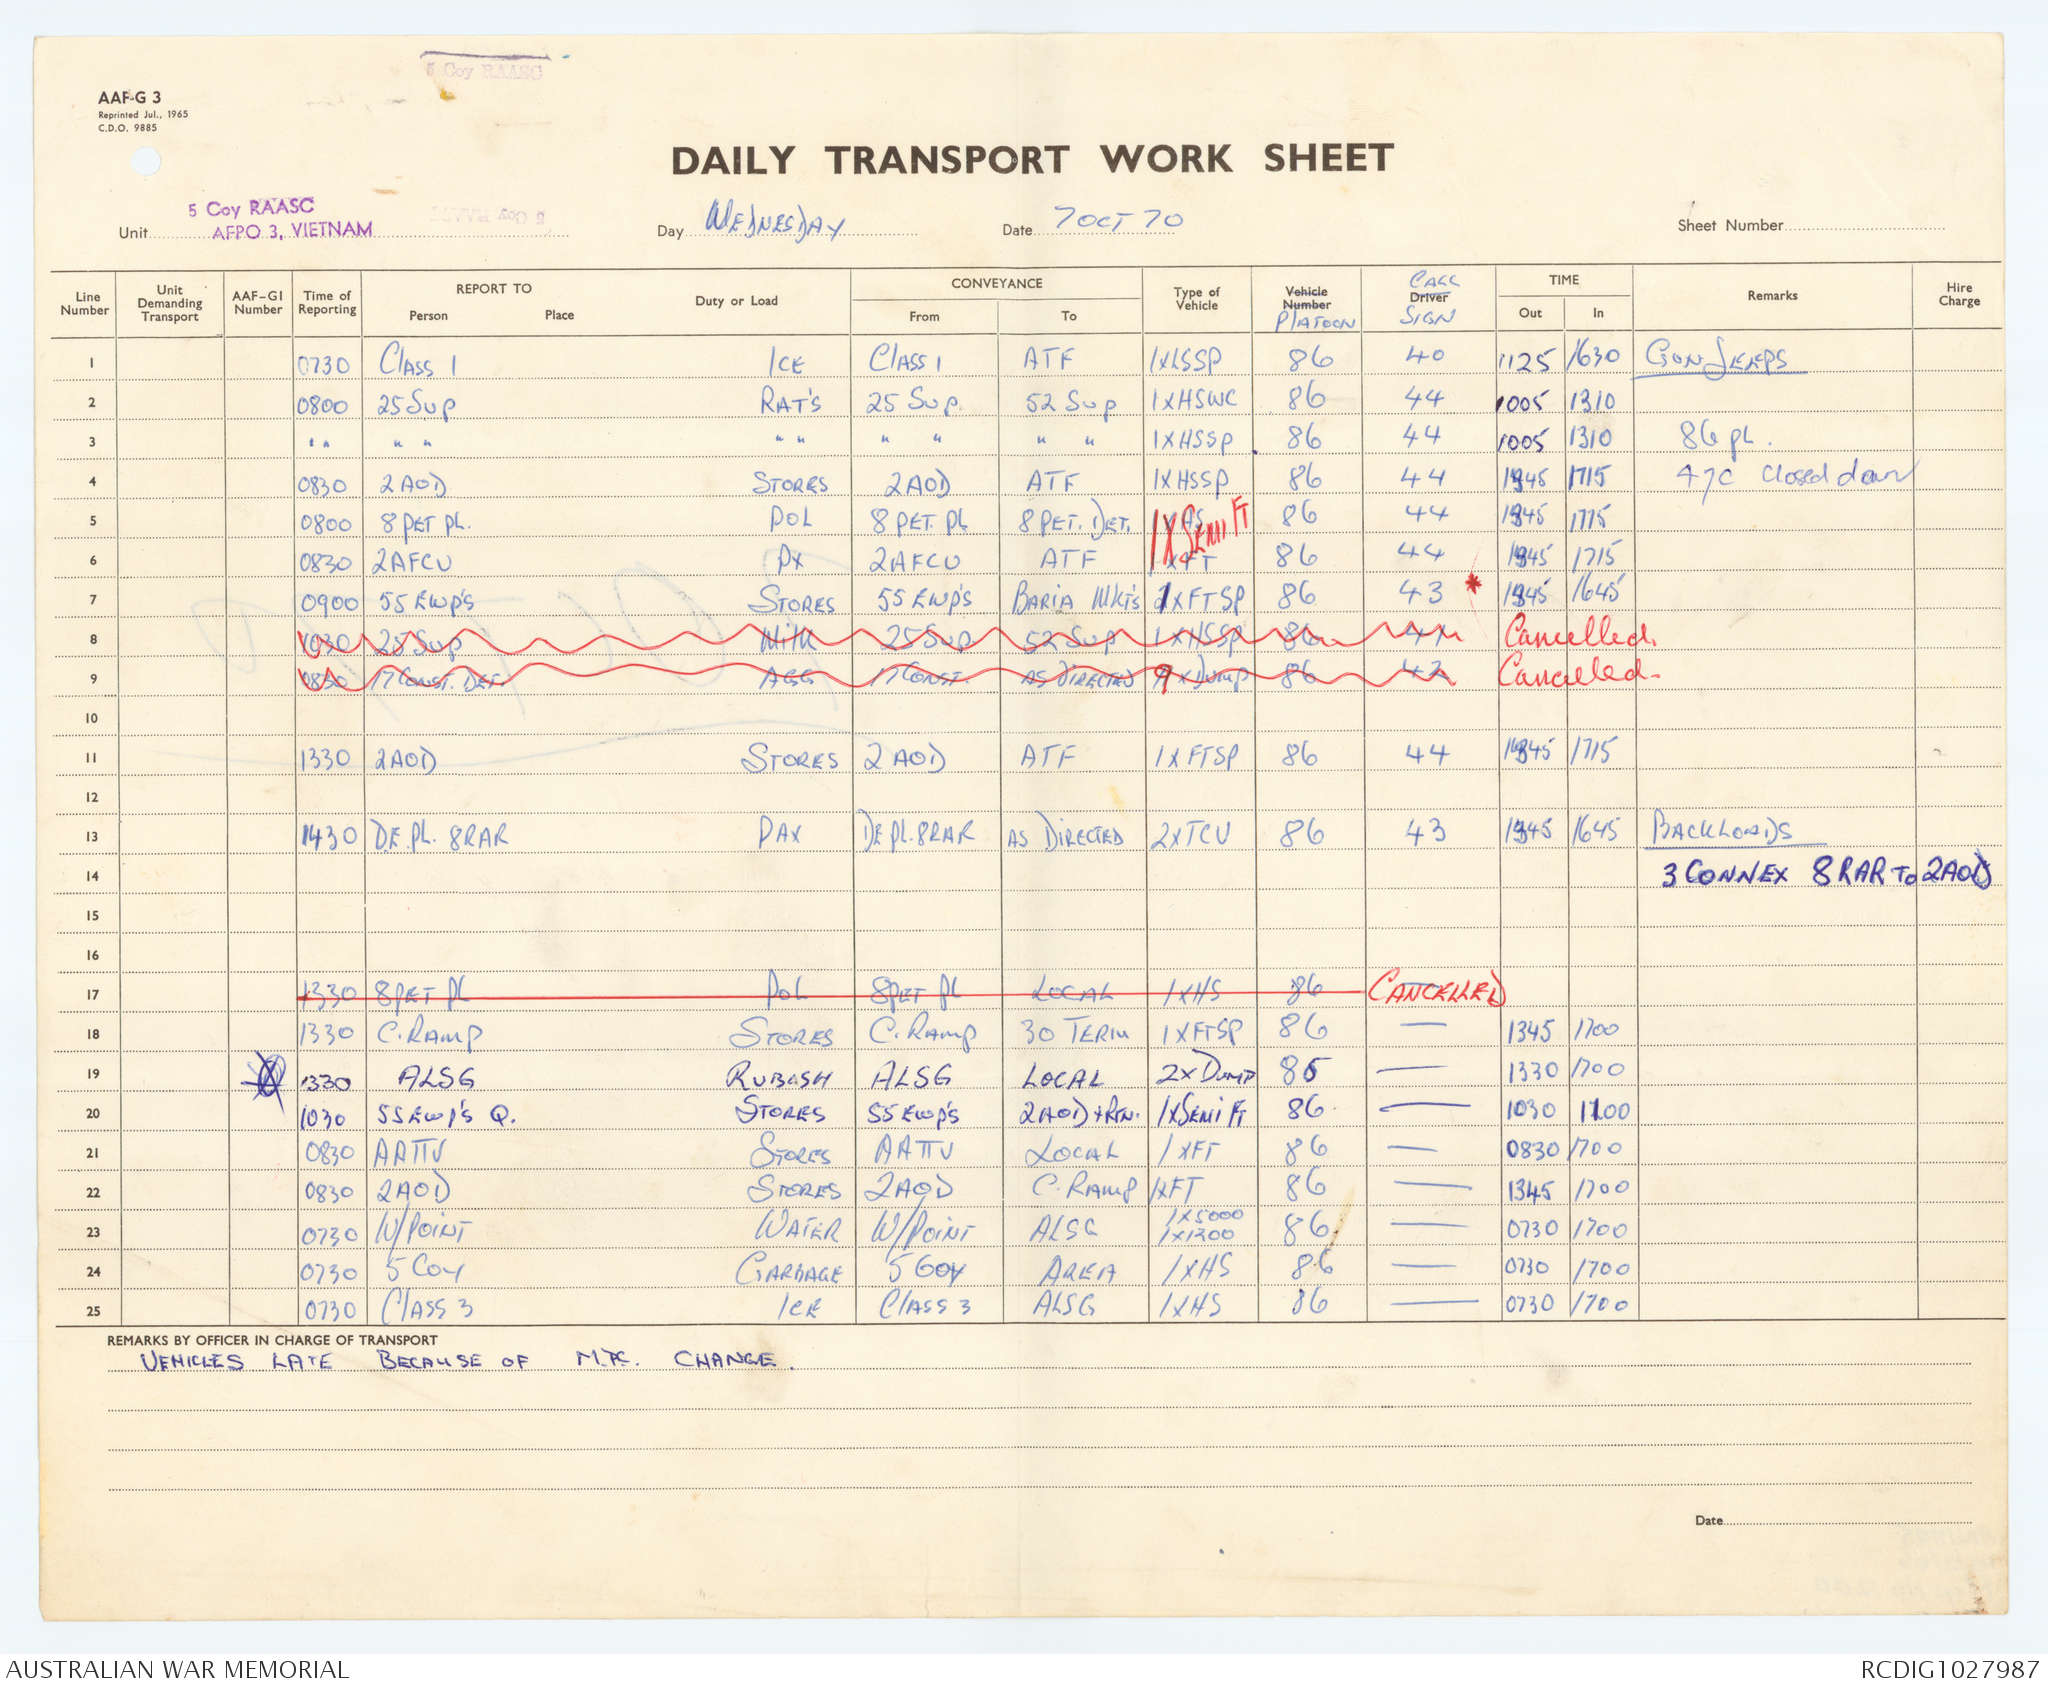 5 Coy RAASC
AAF-G 3
Reprinted Jul., 1965
C.D.O. 9885
DAILY TRANSPORT WORK SHEET
Unit 5 Coy RAASC AFPO 3, VIETNAM Day WEDNESDAY Date 7 OCT 70 Sheet Number
Line Number Unit Demanding Transport AAF-G1 Number Time of Reporting REPORT TO Person Place Duty or Load CONVEYANCE From To Type of Vehicle Vehicle Number PLATOON Driver CALL SIGN TIME Out In Remarks Hire Charge
1 0730 CLASS 1 ICE CLASS 1 ATF 1XLSSP 86 40 1125 1630 GUN JEEPS
2 0800 25 SUP RAT'S 25 SUP 52 SUP 1XHSWC 86 44 1005 1310
3 " " " " " " " " " " 1XHSSP 86 44 1005 1310 86 PL.
4 0830 2AOD STORES 2AOD ATF 1XHSSP 86 44 1345 1715 47C Closed down
5 0800 8 PET PL. POL 8 PET. PL 8 PET. DET. 1XAS 1 X SEMI FT 86 44 1345 1715
6 0830 2AFCU PX 2AFCU ATF 1XFT 86 44 1345 1715
7 0900 55 EWP'S STORES 55 EWP'S BARIA MKT'S 1XFTSP 86 43 * 1345 1645
8 1030 25 SUP Milk 25 SUP 52 SUP 1XHSSP 86 44 Cancelled.
9 0830 17 CONST. DET. AGG 17 CONST. AS DIRECTED 9 X DUMP 86 42 Cancelled.
10
11 1330 2AOD STORES 2AOD ATF 1XFTSP 86 44 1345 1715
12
13 1430 DE PL. 8RAR PAX DE PL. 8RAR AS DIRECTED 2XTCU 86 43 1345 1645 BACKLOADS
14 3 CONNEX 8 RAR TO 2AOD
15
16
17 1330 8 PET PL POL 8 PET PL LOCAL 1XHS 86 CANCELLED
18 1330 C. RAMP STORES C. RAMP 30 TERM 1XFTSP 86 — 1345 1700
19 1330 ALSG RUBBSH ALSG LOCAL 2XDUMP 86 — 1330 1700
20 1030 55 EWP'S Q. STORES 55 EWP'S 2AOD + RTN. 1XSEMI FT 86 — 1030 1100
21 0830 AATTV STORES AATTV LOCAL 1XFT 86 — 0830 1700
22 0830 2AOD STORES 2AOD C. RAMP 1XFT 86 — 1345 1700
23 0730 W/POINT WATER W/POINT ALSG 1X5000 1X1200 86 — 0730 1700
24 0730 5 COY GARBAGE 5 COY AREA 1XHS 86 — 0730 1700
25 0730 CLASS 3 ICE CLASS 3 ALSG 1XHS 86 — 0730 1700
REMARKS BY OFFICER IN CHARGE OF TRANSPORT
VEHICLES LATE BECAUSE OF M.P.C. CHANGE.
Date
AUSTRALIAN WAR MEMORIAL RCDIG1027987